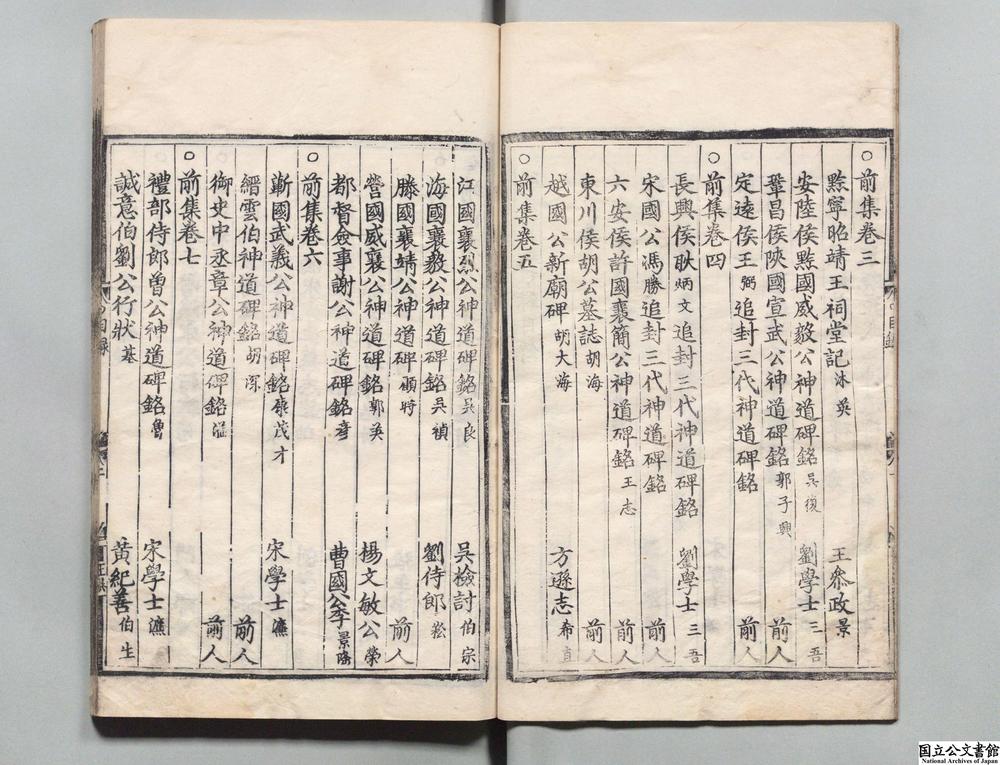 ○前集卷三
黔寧昭靖王祠堂記 沐英 王叅政景
安陸侯黔國威毅公神道碑銘 吳復 劉學士三吾
鞏昌侯陝國宣武公神道碑銘 郭子興 前人
定遠侯王弼追封三代神道碑銘 前人
○前集卷四
長興侯耿炳文追封三代神道碑銘 劉學士三吾
宋國公馮勝追封三代神道碑銘 前人
六安侯許國襄簡公神道碑銘 王志 前人
東川侯胡公墓誌 胡海 前人
越國公新廟碑 胡大海 方遜志希直
○前集卷五
江國襄烈公神道碑銘 吳良 吳檢討伯宗
海國襄毅公神道碑銘 吳禎 劉侍郎崧
滕國襄靖公神道碑 顧時 前人
營國威襄公神道碑銘 郭英 楊文敏公榮
都督僉事謝公神道碑銘 彥 曹國公李景隆
○前集卷六
蘄國武義公神道碑銘 康茂才 宋學士濂
縉雲伯神道碑銘 胡深 前人
御史中丞章公神道碑銘 溢 前人
○前集卷七
禮部侍郎曾公神道碑銘 魯 宋學士濂
誠意伯劉公行狀 基 黃紀善伯生
目錄
国立公文書館
National Archives of Japan